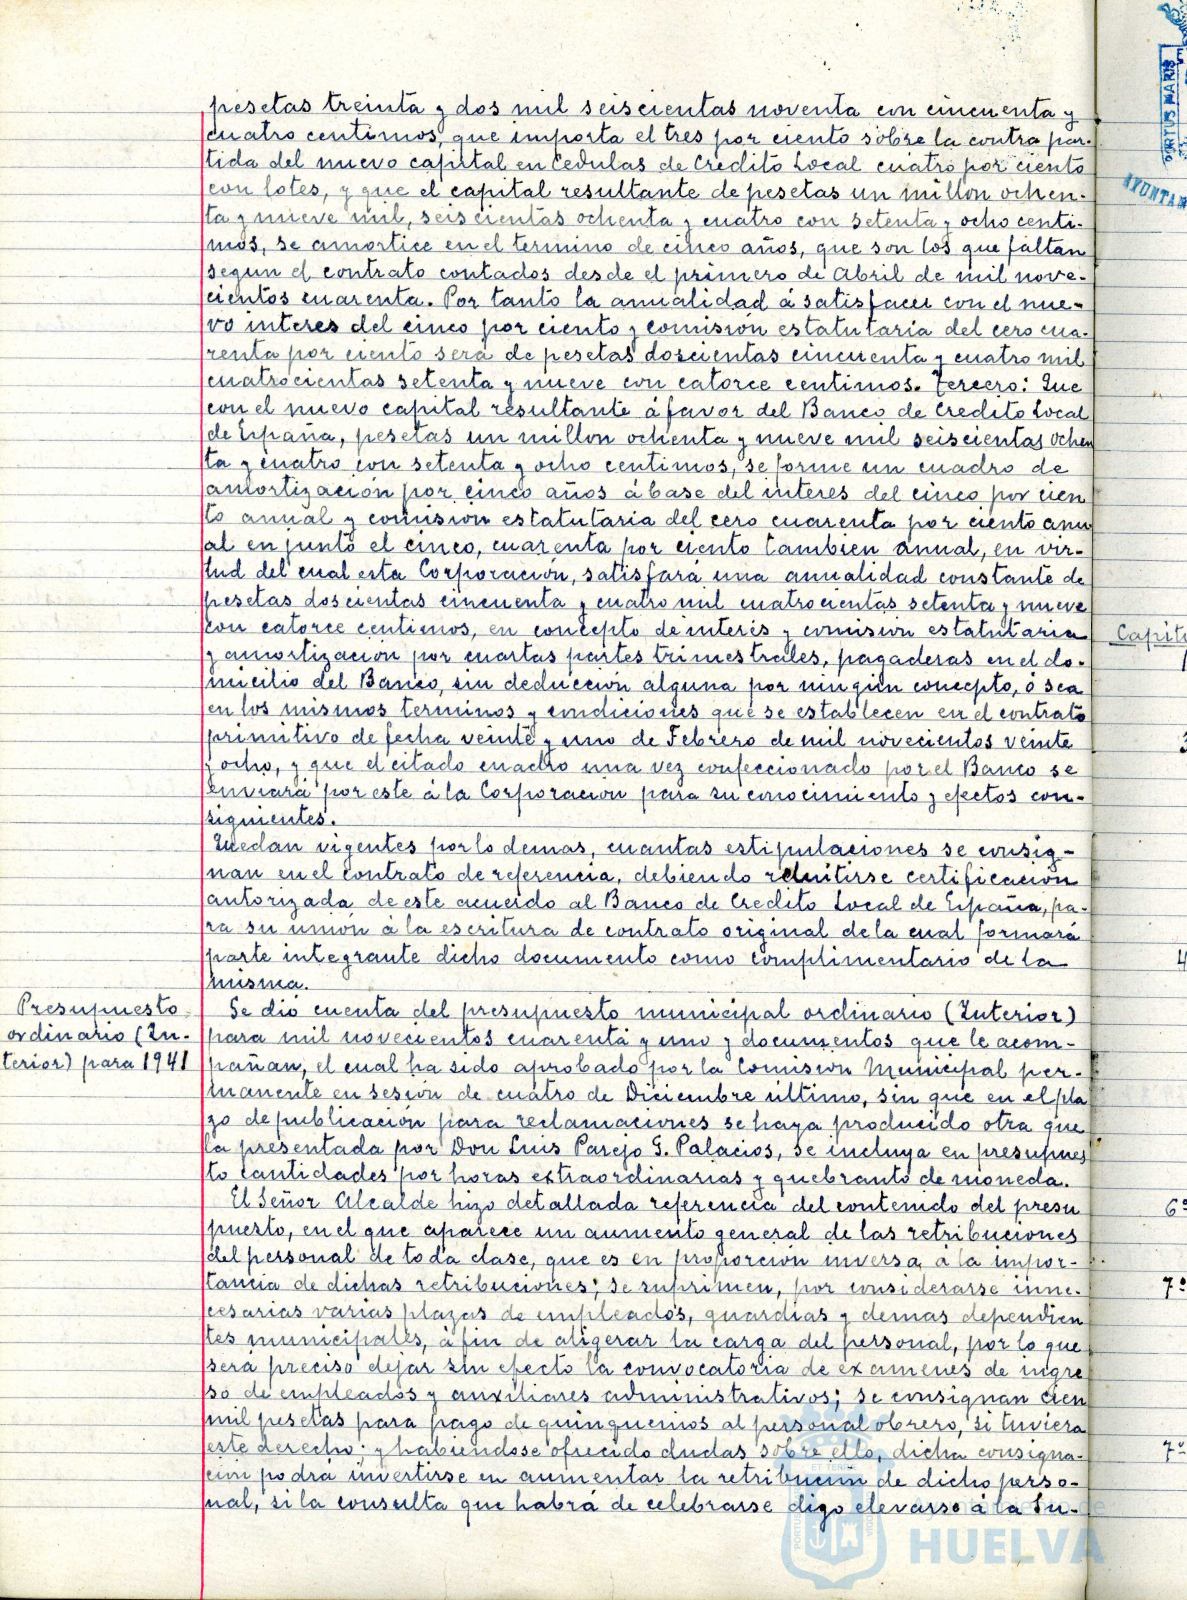 pesetas treinta y dos mil seiscientas noventa con cincuenta y
cuatro centimos, que importa el tres por ciento sobre la contra par-
tida del nuevo capital en Cedulas de Credito Local cuatro por ciento
con lotes, y que el capital resultante de pesetas un millon ochen-
ta y nueve mil, seiscientas ochenta y cuatro con setenta y ocho centi-
mos, se amortice en el termino de cinco años, que son los que faltan
segun el contrato contados desde el primero de Abril de mil nove-
cientos cuarenta. Por tanto la anualidad á satisfacer con el nue-
vo interes del cinco por ciento y comisión estatutaria del cero cua-
renta por ciento será de pesetas doscientas cincuenta y cuatro mil
cuatrocientas setenta y nueve con catorce centimos. Tercero: Que
con el nuevo capital resultante á favor del Banco de Credito Local
de España, pesetas un millon ochenta y nueve mil seiscientas ochen
ta y cuatro con setenta y ocho centimos, se forme un cuadro de
amortización por cinco años á base del interes del cinco por cien
to anual y comisión estatutaria del cero cuarenta por ciento anu
al en junto el cinco, cuarenta por ciento tambien anual, en vir-
tud del cual esta Corporación, satisfará una anualidad constante de
pesetas doscientas cincuenta y cuatro mil cuatrocientas setenta y nueve
con catorce centimos, en concepto de interés y comisión estatutaria
y amortización por cuartas partes trimestrales, pagaderas en el do-
micilio del Banco, sin deducción alguna por ningún concepto, ó sea
en los mismos terminos y condiciones que se establecen en el contrato
primitivo de fecha veinte y uno de Febrero de mil novecientos veinte
y ocho, y que el citado cuadro una vez confeccionado por el Banco se
enviará por este á la Corporación para su conocimiento y efectos con-
siguientes.
Quedan vigentes por lo demas, cuantas estipulaciones se consig-
nan en el contrato de referencia, debiendo remitirse certificación
autorizada de este acuerdo al Banco de Credito Local de España, pa-
ra su unión á la escritura de contrato original de la cual formará
parte integrante dicho documento como complimentario de la
misma.
Presupuesto
ordinario (In-
terior) para 1941
Se dió cuenta del presupuesto municipal ordinario (Interior)
para mil novecientos cuarenta y uno y documentos que le acom-
pañan, el cual ha sido aprobado por la Comisión Municipal per-
manente en sesión de cuatro de Diciembre último, sin que en el pla
zo de publicación para reclamaciones se haya producido otra que
la presentada por Don Luis Parejo G. Palacios, se incluya en presupues
to cantidades por horas extraordinarias y quebranto de moneda.
El Señor Alcalde hizo detallada referencia del contenido del presu
puesto, en el que aparece un aumento general de las retribuciones
del personal de toda clase, que es en proporción inversa á la impor-
tancia de dichas retribuciones; se suprimen, por considerarse inne-
cesarias varias plazas de empleados, guardias y demas dependien
tes municipales, á fin de aligerar la carga del personal, por lo que
será preciso dejar sin efecto la convocatoria de examenes de ingre
so de empleados y auxiliares administrativos; se consignan cien
mil pesetas para pago de quinquenios al personal obrero, si tuviera
este derecho; y habiendose ofrecido dudas sobre ello, dicha consigna-
ción podrá invertirse en aumentar la retribución de dicho perso-
nal, si la consulta que habrá de celebrarse digo elevarse á la Su-
PORTUS MARIS
AYUNTAM
Capitu
3
4
6º
7º
7º
HUELVA